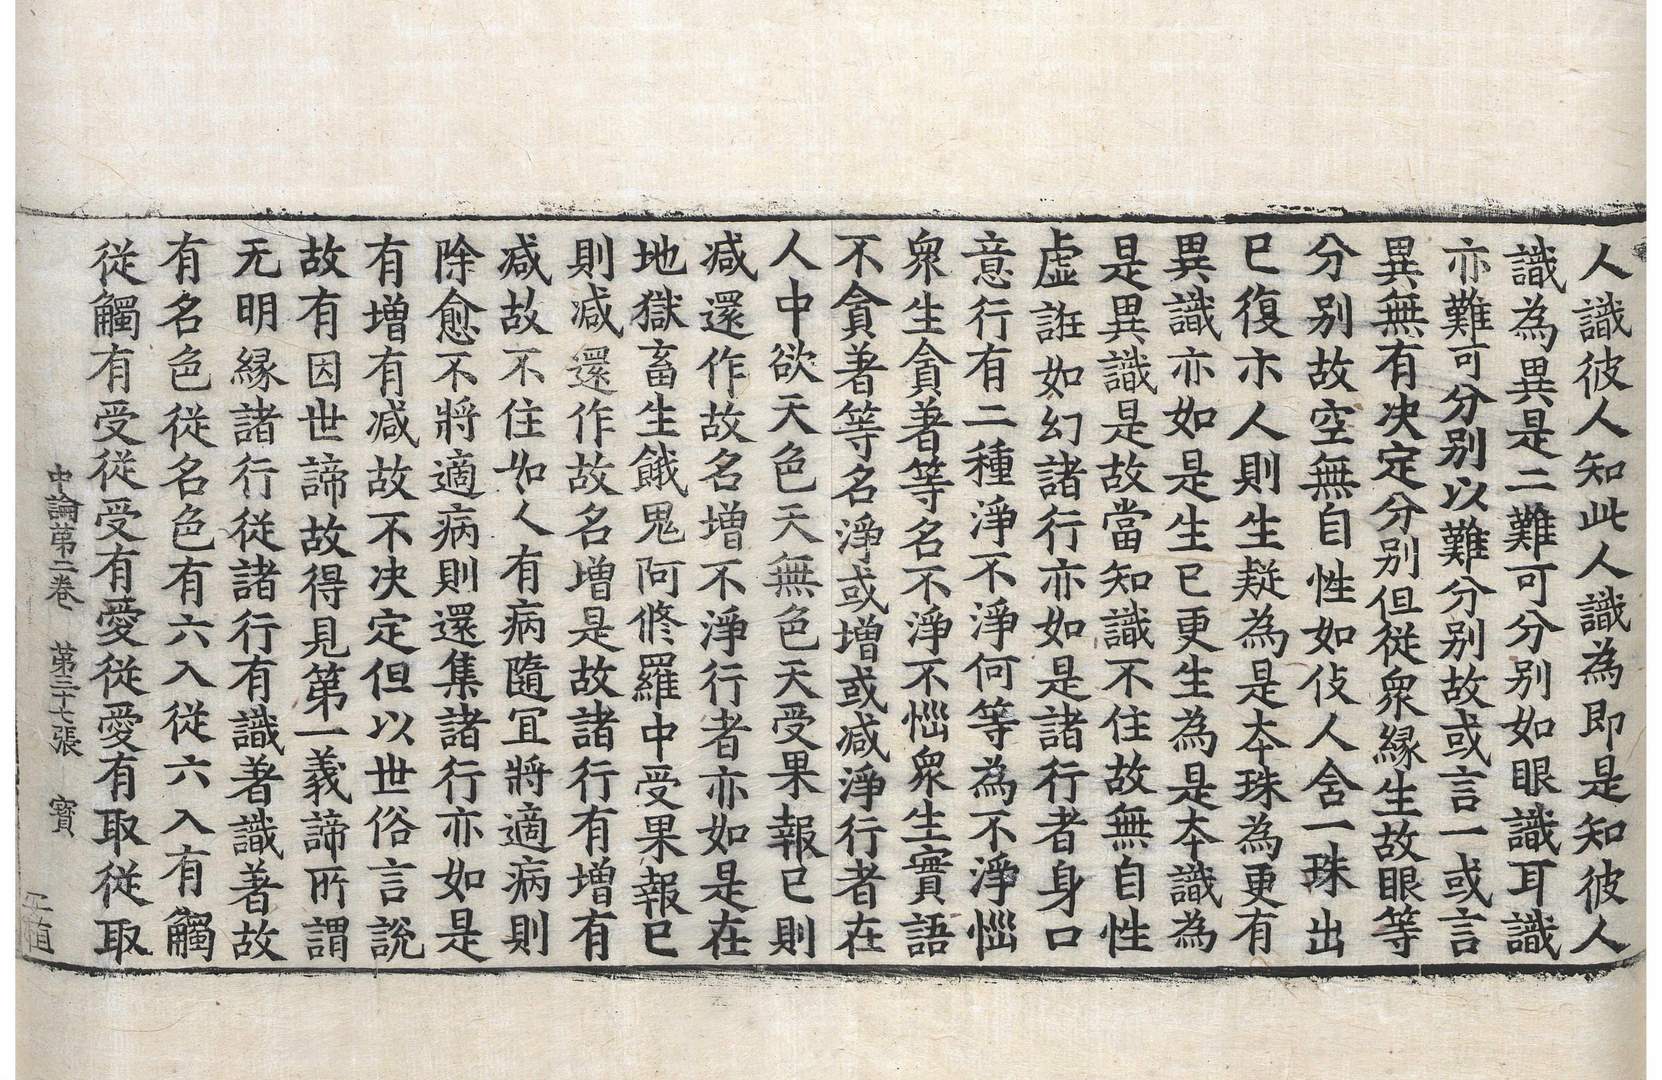 人識彼人知此人識為即是知彼人
識為異是二難可分別如眼識耳識
亦難可分別以難分別故或言一或言
異無有决定分別但從衆緣生故眼等
分別故空無自性如伎人舍一珠出
已復示人則生疑為是本珠為更有
異識亦如是生已更生為是本識為
是異識是故當知識不住故無自性
虛誑如幻諸行亦如是諸行者身口
意行有二種淨不淨何等為不淨惱
衆生貪著等名不淨不惱衆生實語
不貪著等名淨或增或减淨行者在
人中欲天色天無色天受果報已則
减還作故名增不淨行者亦如是在
地獄畜生餓鬼阿修羅中受果報已
則减還作故名增是故諸行有增有
减故不住如人有病隨冝將適病則
除愈不將適病則還集諸行亦如是
有增有减故不决定但以世俗言說
故有因世諦故得見第一義諦所謂
无明緣諸行從諸行有識著識著故
有名色從名色有六入從六入有觸
從觸有受從受有愛從愛有取從取
中論第二卷 第三十七張 寶